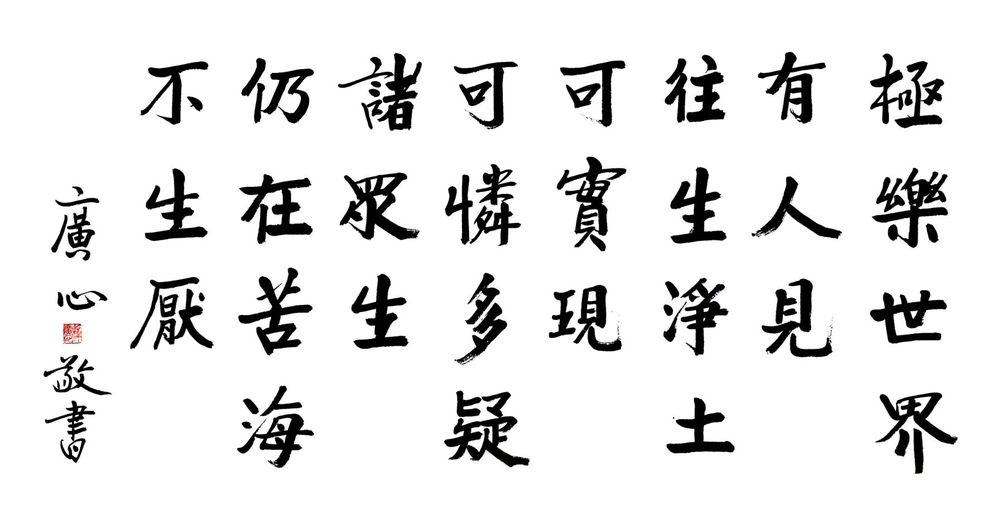 極樂世界
有人見
往生淨土
可實現
可憐多疑
諸眾生
仍在苦海
不生厭
廣心敬書